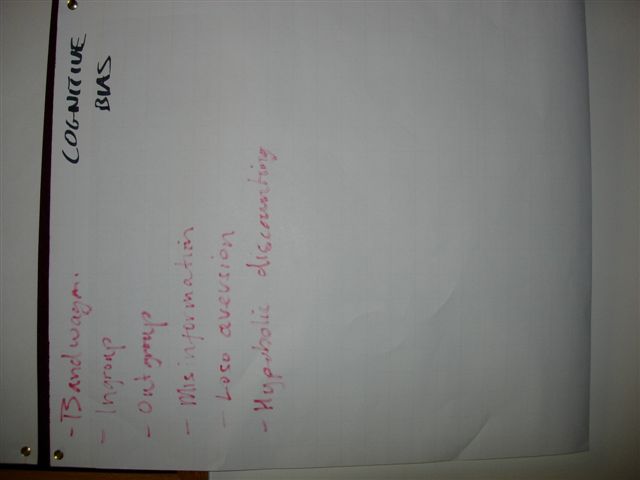 COGNITIVE
BIAS
- Bandwagon.
- Ingroup
- Outgroup
- Misinformation
- Loss aversion
- Hyperbolic discounting